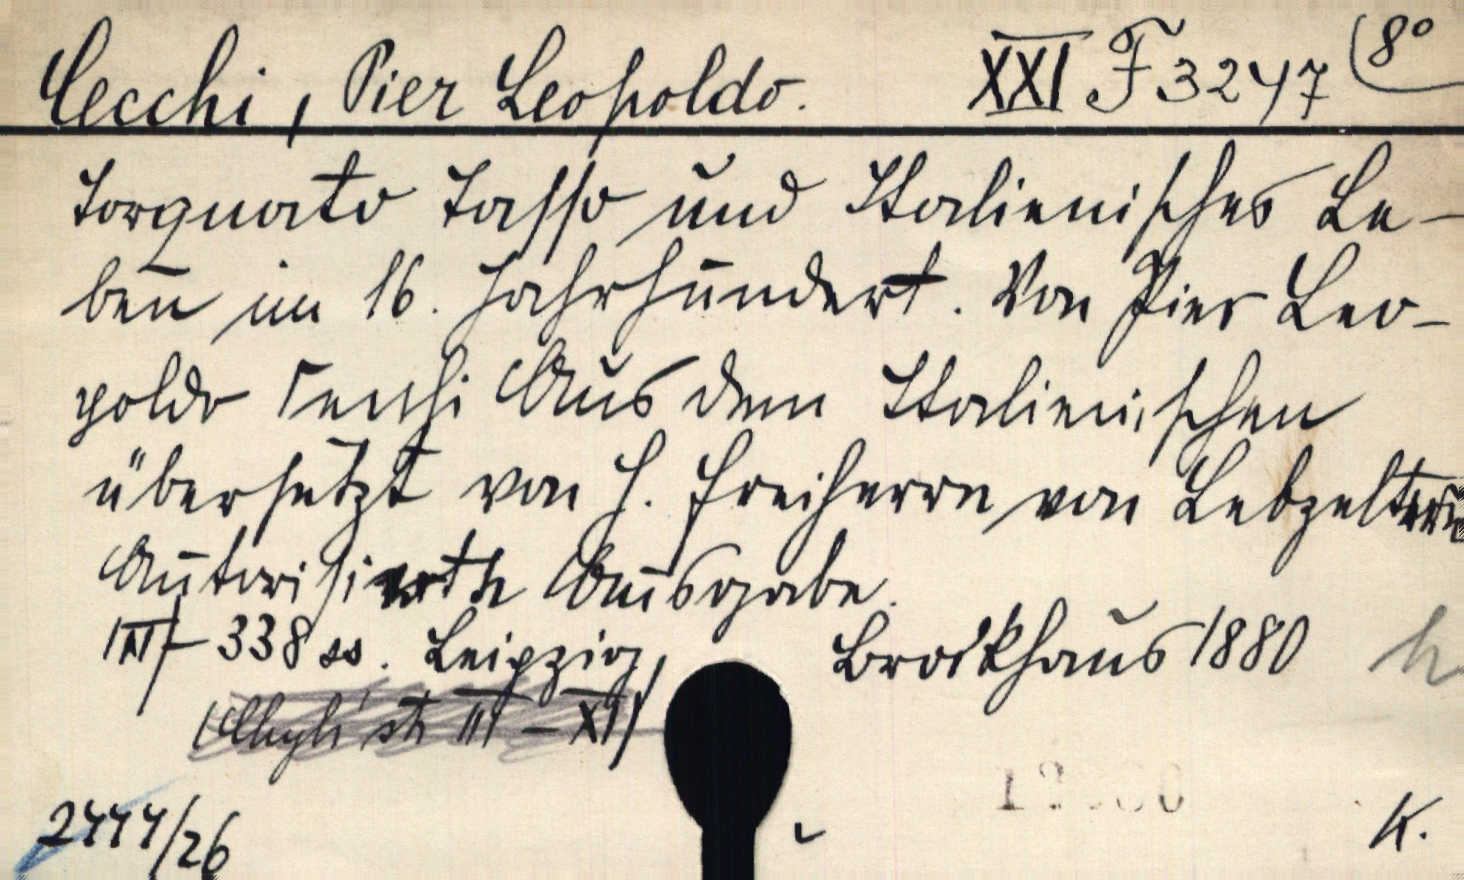 Cecchi, Pier Leopoldo. XXI F 3247 8°
Torquato Tasso und Italienisches Le-
ben im 16. Jahrhundert. Von Pier Leo-
poldo Cecchi Aus dem Italienischen
übersetzt von H. Freiherrn von Lebzeltern
Autorisirte Ausgabe.
338 ss. Leipzig, Brockhaus 1880 h
III – XI)
2444/26 K.